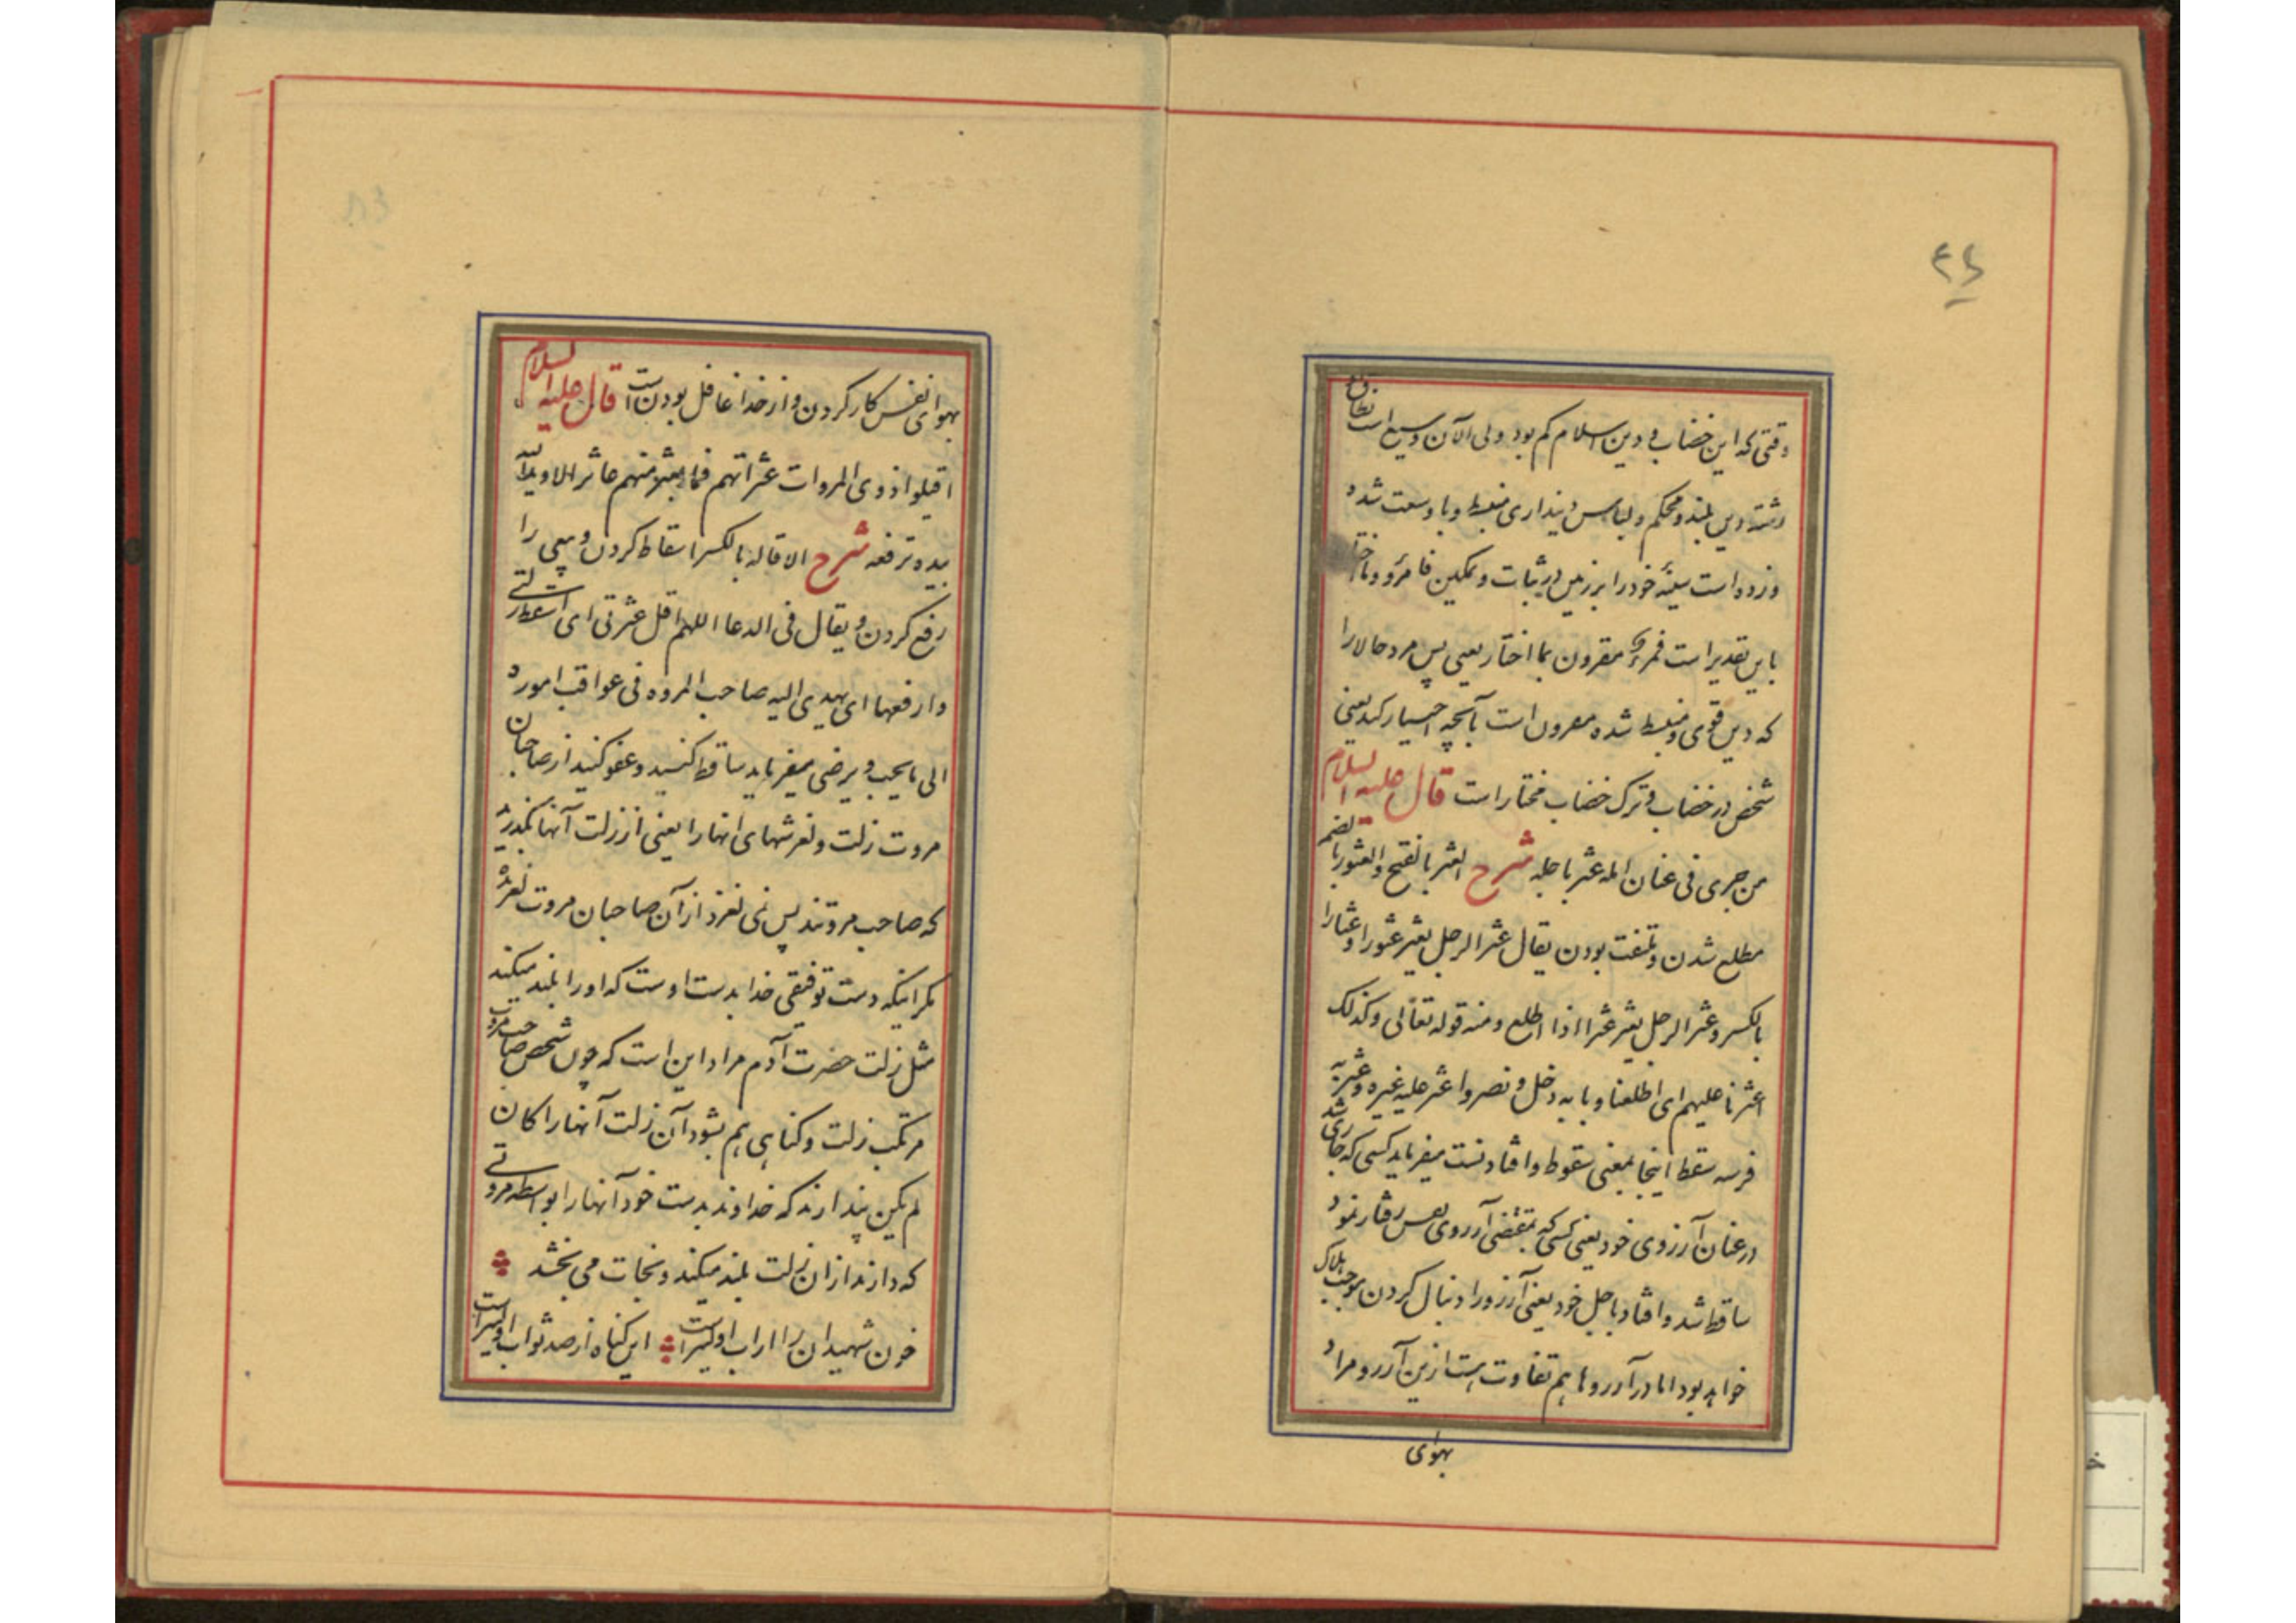 ۴۶
وقتی که این خضاب در دین اسلام کم بود ولی الآن وسیع است نطاق
رشته دین بلند و محکم و لباس دینداری منبسط و با وسعت شده
و زده است سینهٔ خود را بر زمین در ثبات و تمکین فامرؤ و ما اختار
باین تقدیر است فمرء مقرون بما اختار یعنی پس مرد حالا را
که دین قوی و منبسط شده مقرون است بآنچه اختیار کند یعنی
شخص در خضاب و ترک خضاب مختار است قال علیه السلام
من جری فی عنان امله عثر باجله شرح العثر بالفتح والعثور بالضم
مطلع شدن و ملتفت بودن یقال عثر الرجل یعثر عثورا و عثارا
بالکسر و عثر الرجل یعثر عثرا اذا اطلع و منه قوله تعالی و کذلک
اعثرنا علیهم ای اطلعنا و بابه دخل و نصر و اعثر علیه غیره و عثر به
فرسه سقط اینجا بمعنی سقوط و افتادنست میفرماید کسی که جاری شد
در عنان آرزوی خود یعنی کسی که بمقتضی آرزوی نفس رفتار نمود
ساقط شد و افتاد باجل خود یعنی آرزو را دنبال کردن موجب هلاک
خواهد بود اما در آرزوها هم تفاوت هست ازین آرزو مراد
بهوای
بهوای نفس کار کردن و از خدا غافل بودن است قال علیه السلام
اقیلوا ذوی المروات عثراتهم فما یعثر منهم عاثر الا و ید الله
بیده ترفعه شرح الاقاله بالکسر اسقاط کردن و چیزی را
رفع کردن و یقال فی الدعا اللهم اقل عثرتی ای اسقط زلتی
و ارفعها ای یهدی الیه صاحب المروه فی عواقب اموره
الی ما یحب و یرضی میفرماید ساقط کنید و عفو کنید از صاحبان
مروت زلت و لغزشهای انها را یعنی از زلت آنها بگذرید
که صاحب مروتند پس نمی لغزد از آن صاحبان مروت لغزنده
مگر اینکه دست توفیقی خدا بدست اوست که او را بلند میکند
مثل زلت حضرت آدم مراد این است که چون شخص صاحب مروت
مرتکب زلت و گناهی هم بشود آن زلت آنها را کان
لم یکن پندارند که خداوند بدست خود آنها را بواسطه مروتی
که دارند از ان زلت بلند میکند و نجات می بخشد
خون شهیدان را ز اب اولیتر است این گناه از صد ثواب اولیتر است